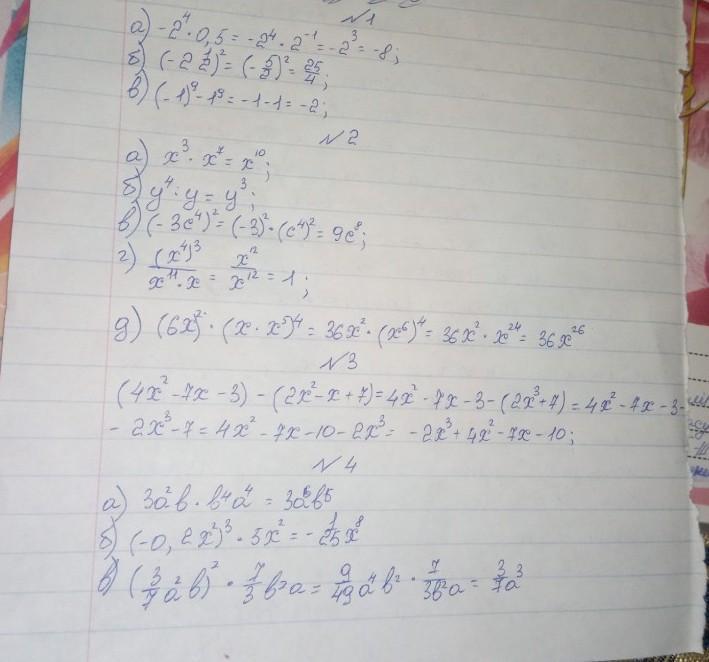 №1
а) -2⁴·0,5 = -2⁴·2⁻¹ = -2³ = -8;
б) (-2 1/2)² = (-5/2)² = 25/4;
в) (-1)⁹-1⁹ = -1-1 = -2;
№2
а) x³·x⁷ = x¹⁰;
б) y⁴:y = y³;
в) (-3c⁴)² = (-3)²·(c⁴)² = 9c⁸;
г) (x⁴)³/x¹¹·x = x¹²/x¹² = 1;
д) (6x)²·(x·x⁵)⁴ = 36x²·(x⁶)⁴ = 36x²·x²⁴ = 36x²⁶
№3
(4x²-7x-3)-(2x²-x+7) = 4x²-7x-3-(2x³+7) = 4x²-7x-3-
-2x³-7 = 4x²-7x-10-2x³ = -2x³+4x²-7x-10;
№4
а) 3a²b·b⁴a⁴ = 3a⁶b⁵
б) (-0,2x²)³·5x² = -1/25x⁸
в) (3/7a²b)²·7/3b²a = 9/49a⁴b²·7/3b²a = 3/7a³